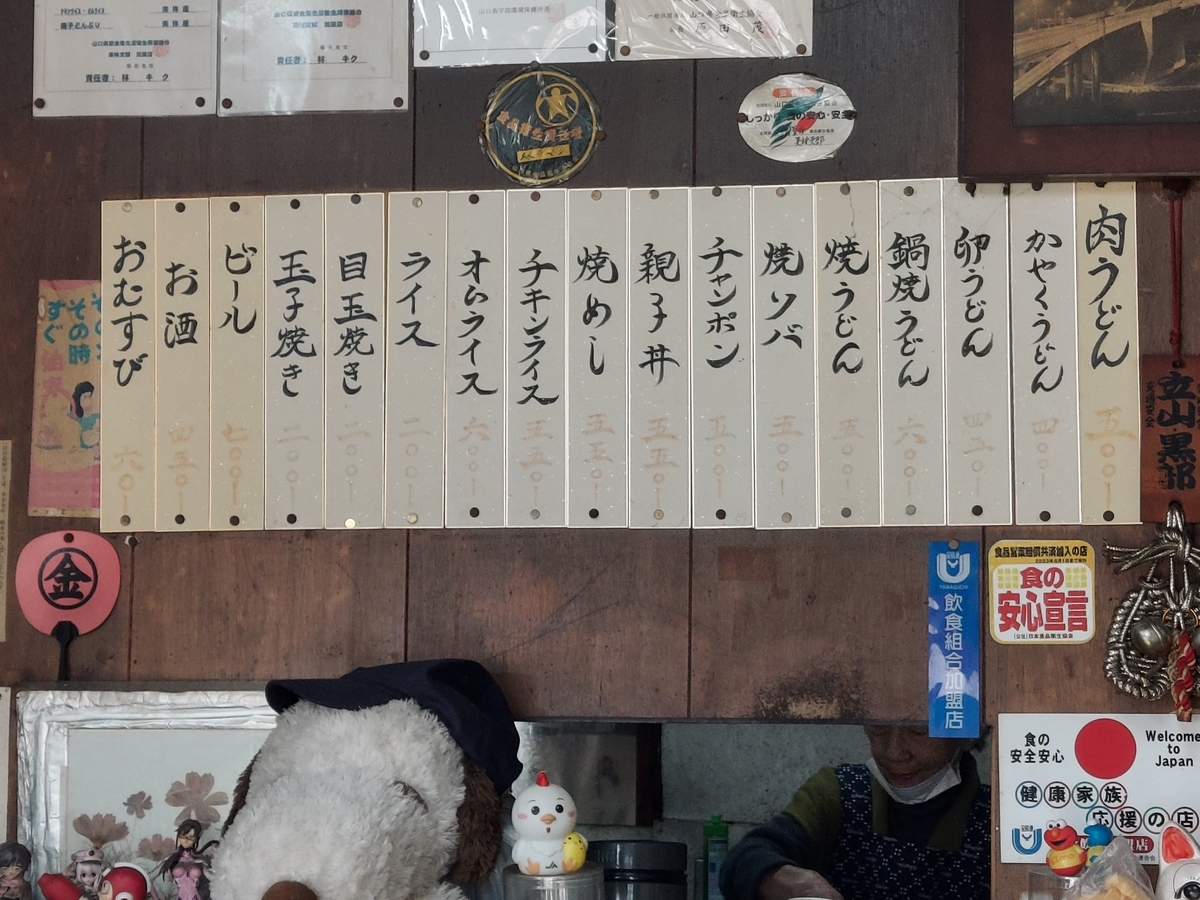 責任者：林 キク
責任者：林 キク
肉うどん 五〇〇
かやくうどん 四〇〇
卵うどん 四五〇
鍋焼うどん 六〇〇
焼うどん 五〇〇
焼ソバ 五〇〇
チャンポン 五〇〇
親子丼 五五〇
焼めし 五五〇
チキンライス 五五〇
オムライス 六〇〇
ライス 二〇〇
目玉焼き 二〇〇
玉子焼き 二〇〇
ビール 七〇〇
お酒 四五〇
おむすび 六〇
その時
すぐ
金
立山黒部
YAMAGUCHI
飲食組合加盟店
食品営業賠償共済加入の店
食の
安心宣言
食の
安全安心
Welcome
to
Japan
健康家族
応援の店